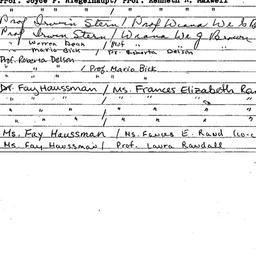 Prof. Joyce F. Riegelhaupt/ Prof. Kenneth R. Maxwell
" " " " / " " " "
Prof Irwin Stern / Prof Weana We
Prof Irwin Stern / Weana We
Warren Dean / Prof " "
Maria Bick / Dr. Roberta Delson
Prof. Roberta Delson
" " " / Prof. Maria Bick
Dr. Fay Haussman / Ms. Frances Elizabeth Ran
" " " / " " "
" " " " " "
" " " " " "
Ms. Fay Haussman / Ms. Frances E. Rand (co-c
Ms. Fay Haussman / Prof. Laura Randall